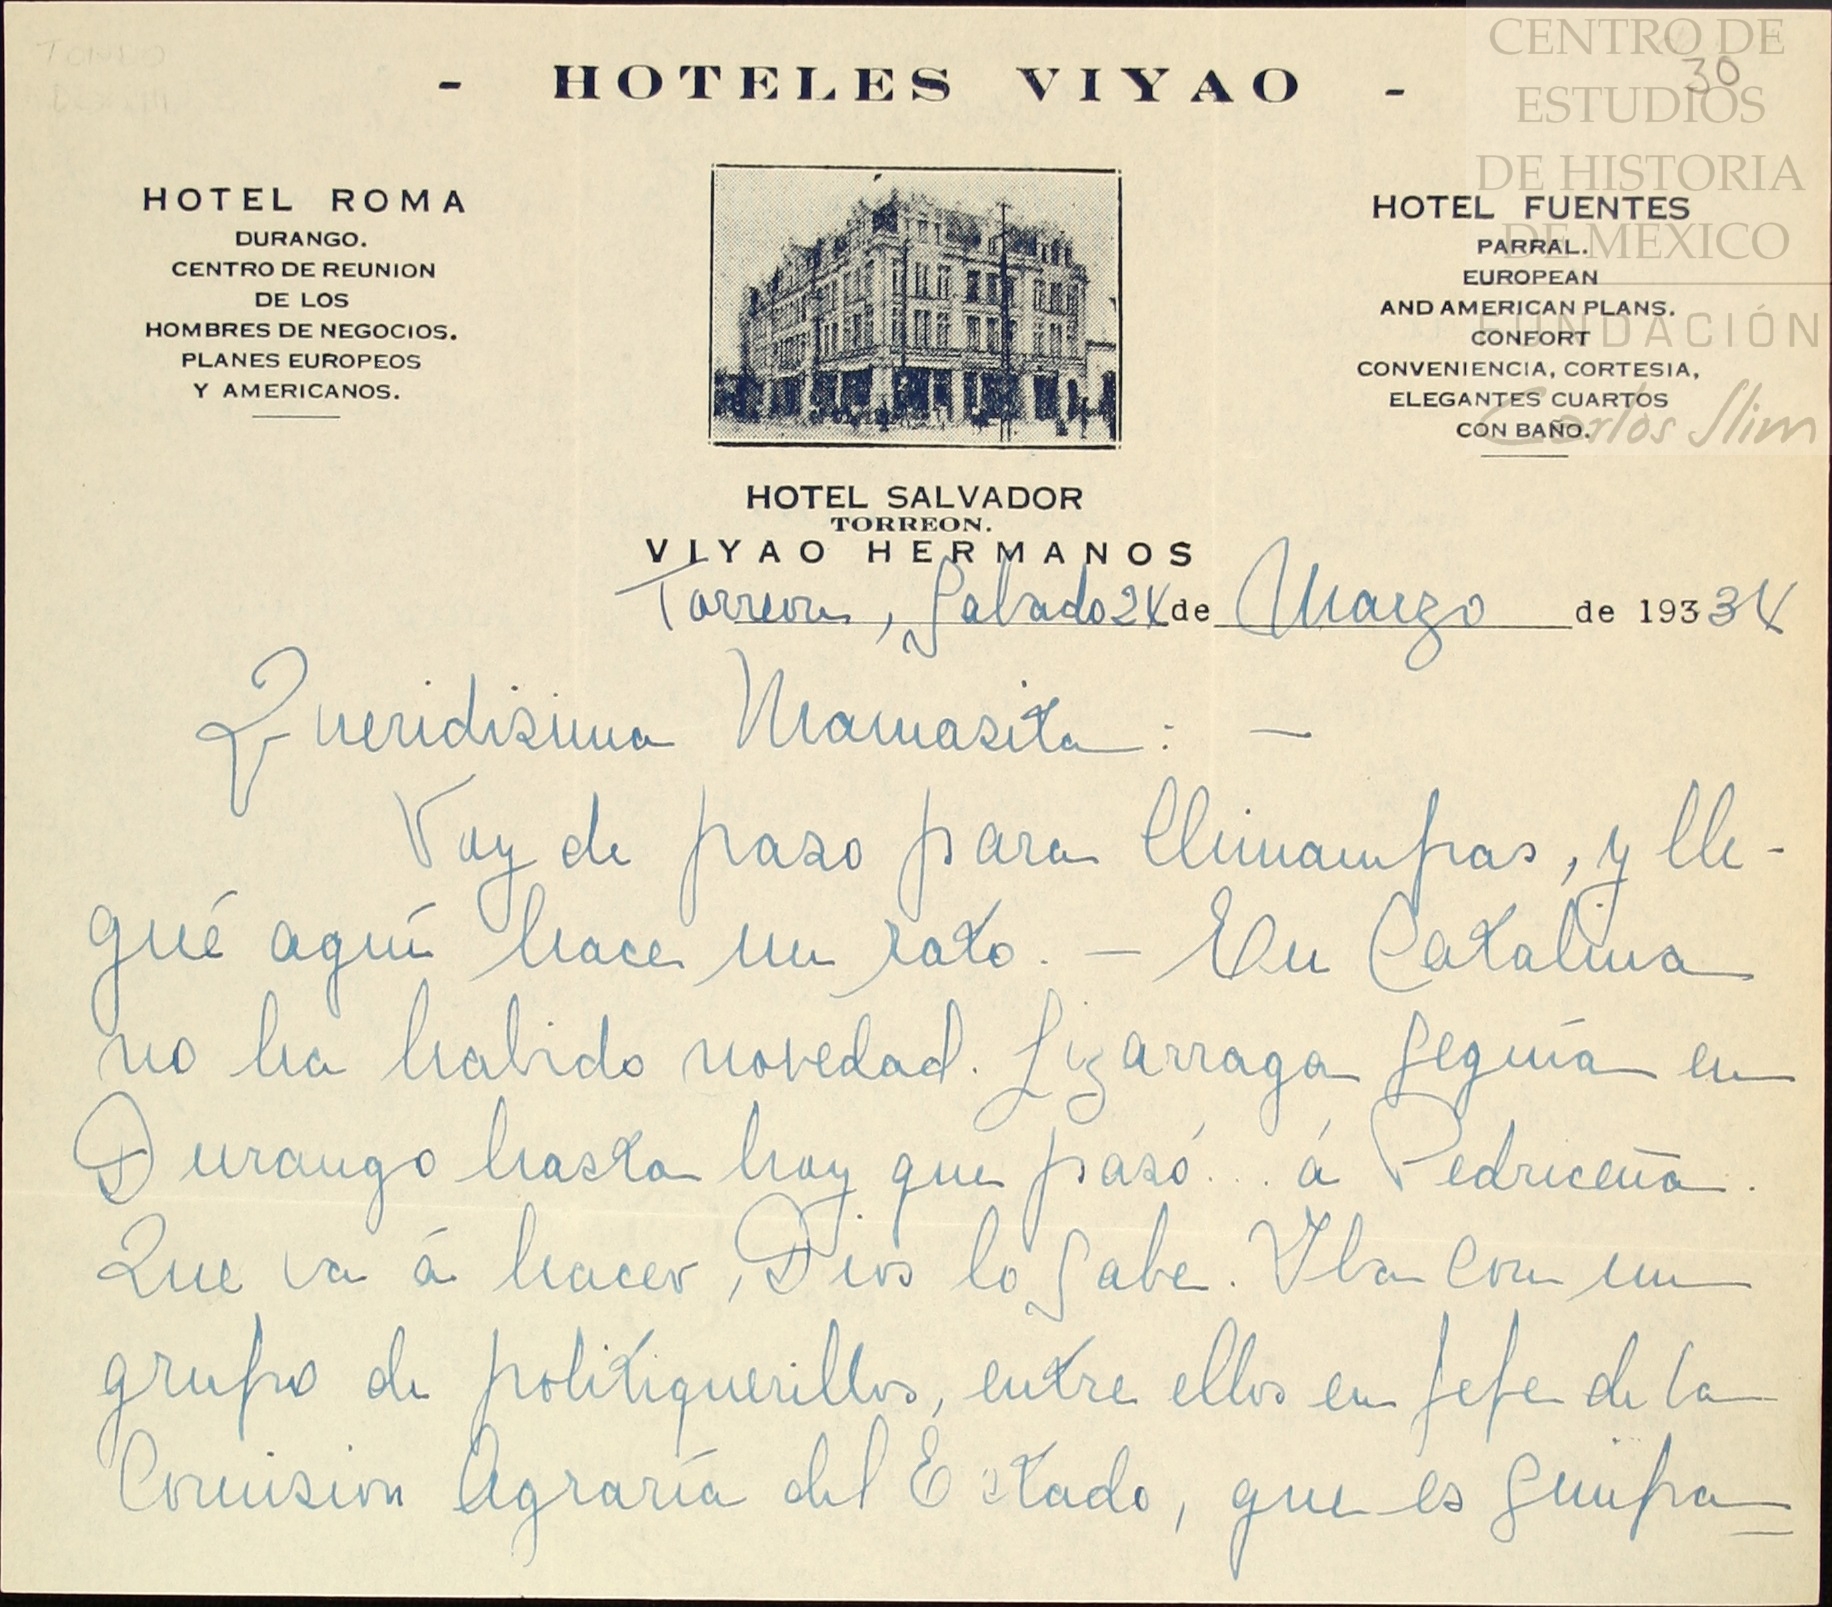 CENTRO DE
ESTUDIOS
DE HISTORIA
DE MEXICO
FUNDACIÓN
Carlos Slim
30
- HOTELES VIYAO -
HOTEL ROMA
DURANGO.
CENTRO DE REUNION
DE LOS
HOMBRES DE NEGOCIOS.
PLANES EUROPEOS
Y AMERICANOS.
HOTEL FUENTES
PARRAL.
EUROPEAN
AND AMERICAN PLANS.
CONFORT
CONVENIENCIA, CORTESIA,
ELEGANTES CUARTOS
CON BAÑO.
HOTEL SALVADOR
TORREON.
VIYAO HERMANOS
Torreon, Sabado 24 de Marzo de 193334
Queridisima Mamasita: —
Voy de paso para Chinampas, y lle-
gué aquí hace un rato. — En Catalina
no ha habido novedad. Lizarraga seguía en
Durango hasta hoy que pasó... á Pedriceña.
Que va á hacer, Dios lo sabe. Iba con un
grupo de politiquerillos, entre ellos en jefe de la
Comision Agraría del Estado, que es